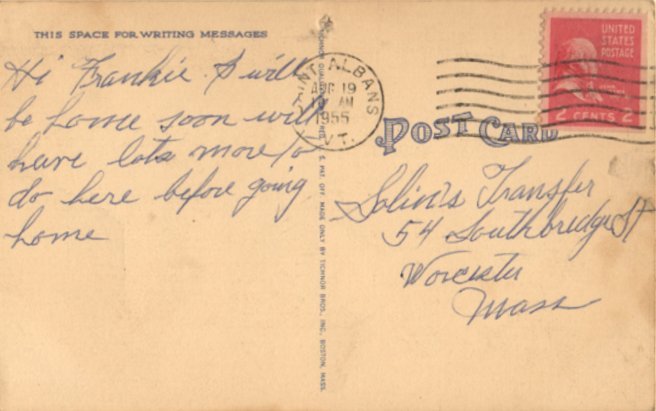 THIS SPACE FOR WRITING MESSAGES
Hi Frankie. I will
be home soon will
have lots more to
do here before going
home
SAINT ALBANS
AUG 19
AM
1955
VT.
UNITED
STATES
POSTAGE
2 CENTS 2
POST CARD
Transfer
54 Southbridge St
Worcester
Mass
MADE ONLY BY TICHNOR BROS., INC., BOSTON, MASS.